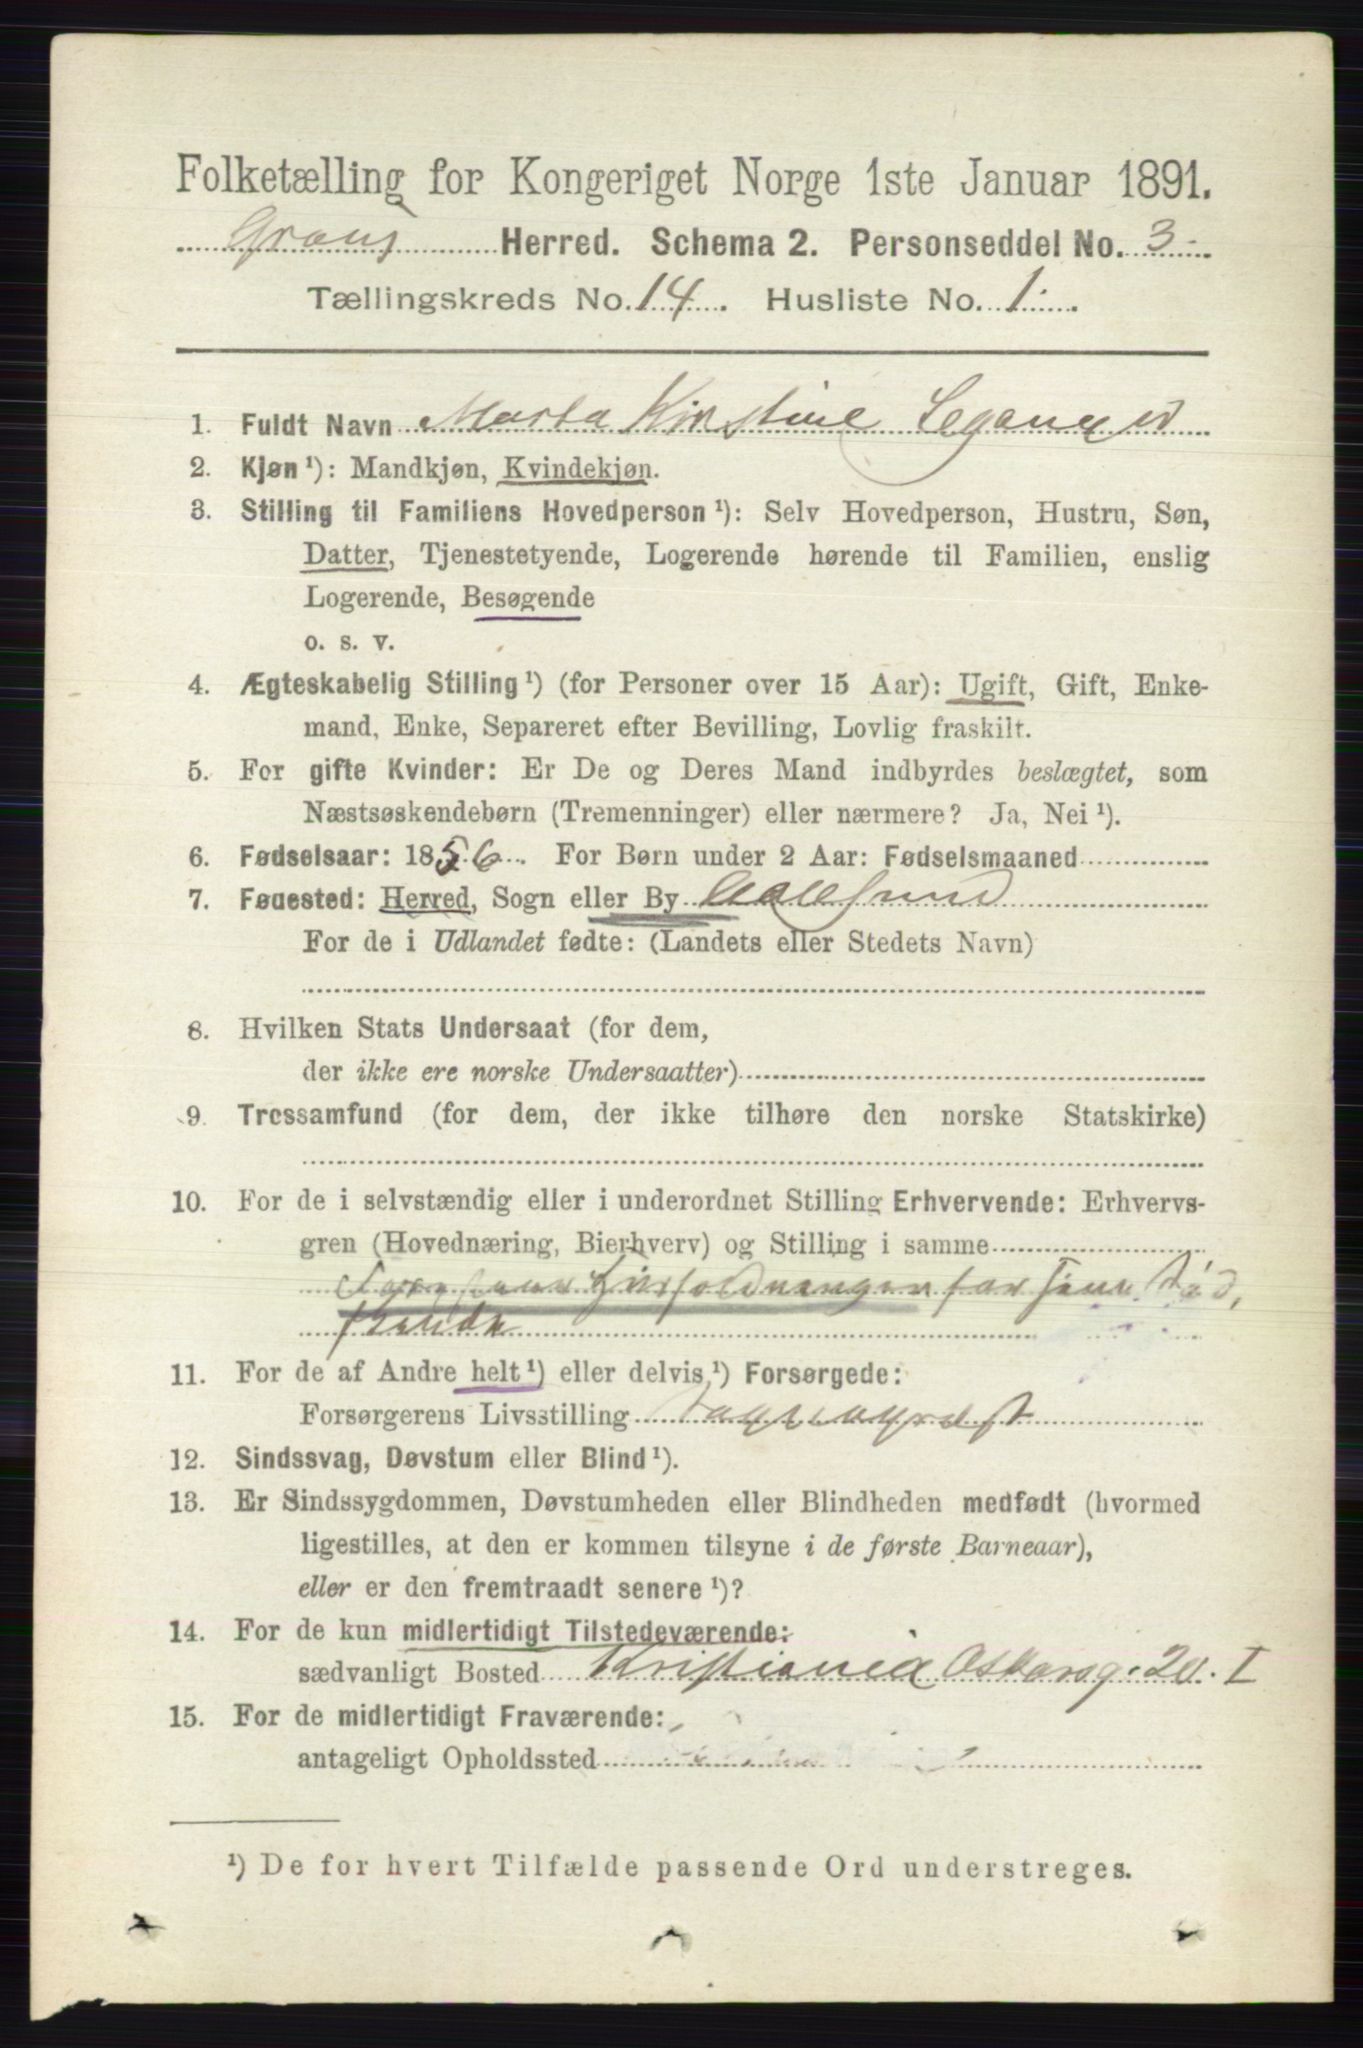 Folketælling for Kongeriget Norge 1ste Januar 1891.
Grans Herred. Schema 2. Personseddel No. 3
Tællingskreds No. 14. Husliste No. 1.
1. Fuldt Navn Marta Kirstine Leganger
2. Kjøn ¹): Mandkjøn, Kvindekjøn.
3. Stilling til Familiens Hovedperson ¹): Selv Hovedperson, Hustru, Søn,
Datter, Tjenestetyende, Logerende hørende til Familien, enslig
Logerende, Besøgende
o. s. v.
4. Ægteskabelig Stilling ¹) (for Personer over 15 Aar): Ugift, Gift, Enke-
mand, Enke, Separeret efter Bevilling, Lovlig fraskilt.
5. For gifte Kvinder: Er De og Deres Mand indbyrdes beslægtet, som
Næstsøskendebørn (Tremenninger) eller nærmere? Ja, Nei ¹).
6. Fødselsaar: 1856. For Børn under 2 Aar: Fødselsmaaned
7. Fødested: Herred, Sogn eller By Aalesund
For de i Udlandet fødte: (Landets eller Stedets Navn)
8. Hvilken Stats Undersaat (for dem,
der ikke ere norske Undersaatter)
9. Trossamfund (for dem, der ikke tilhøre den norske Statskirke)
10. For de i selvstændig eller i underordnet Stilling Erhvervende: Erhvervs-
gren (Hovednæring, Bierhverv) og Stilling i samme
Husholdningen for sine
11. For de af Andre helt ¹) eller delvis ¹) Forsørgede:
Forsørgerens Livsstilling Sogneprest
12. Sindssvag, Døvstum eller Blind ¹).
13. Er Sindssygdommen, Døvstumheden eller Blindheden medfødt (hvormed
ligestilles, at den er kommen tilsyne i de første Barneaar),
eller er den fremtraadt senere ¹)?
14. For de kun midlertidigt Tilstedeværende:
sædvanligt Bosted Kristiania Oskarsg. 20. I
15. For de midlertidigt Fraværende:
antageligt Opholdssted
¹) De for hvert Tilfælde passende Ord understreges.